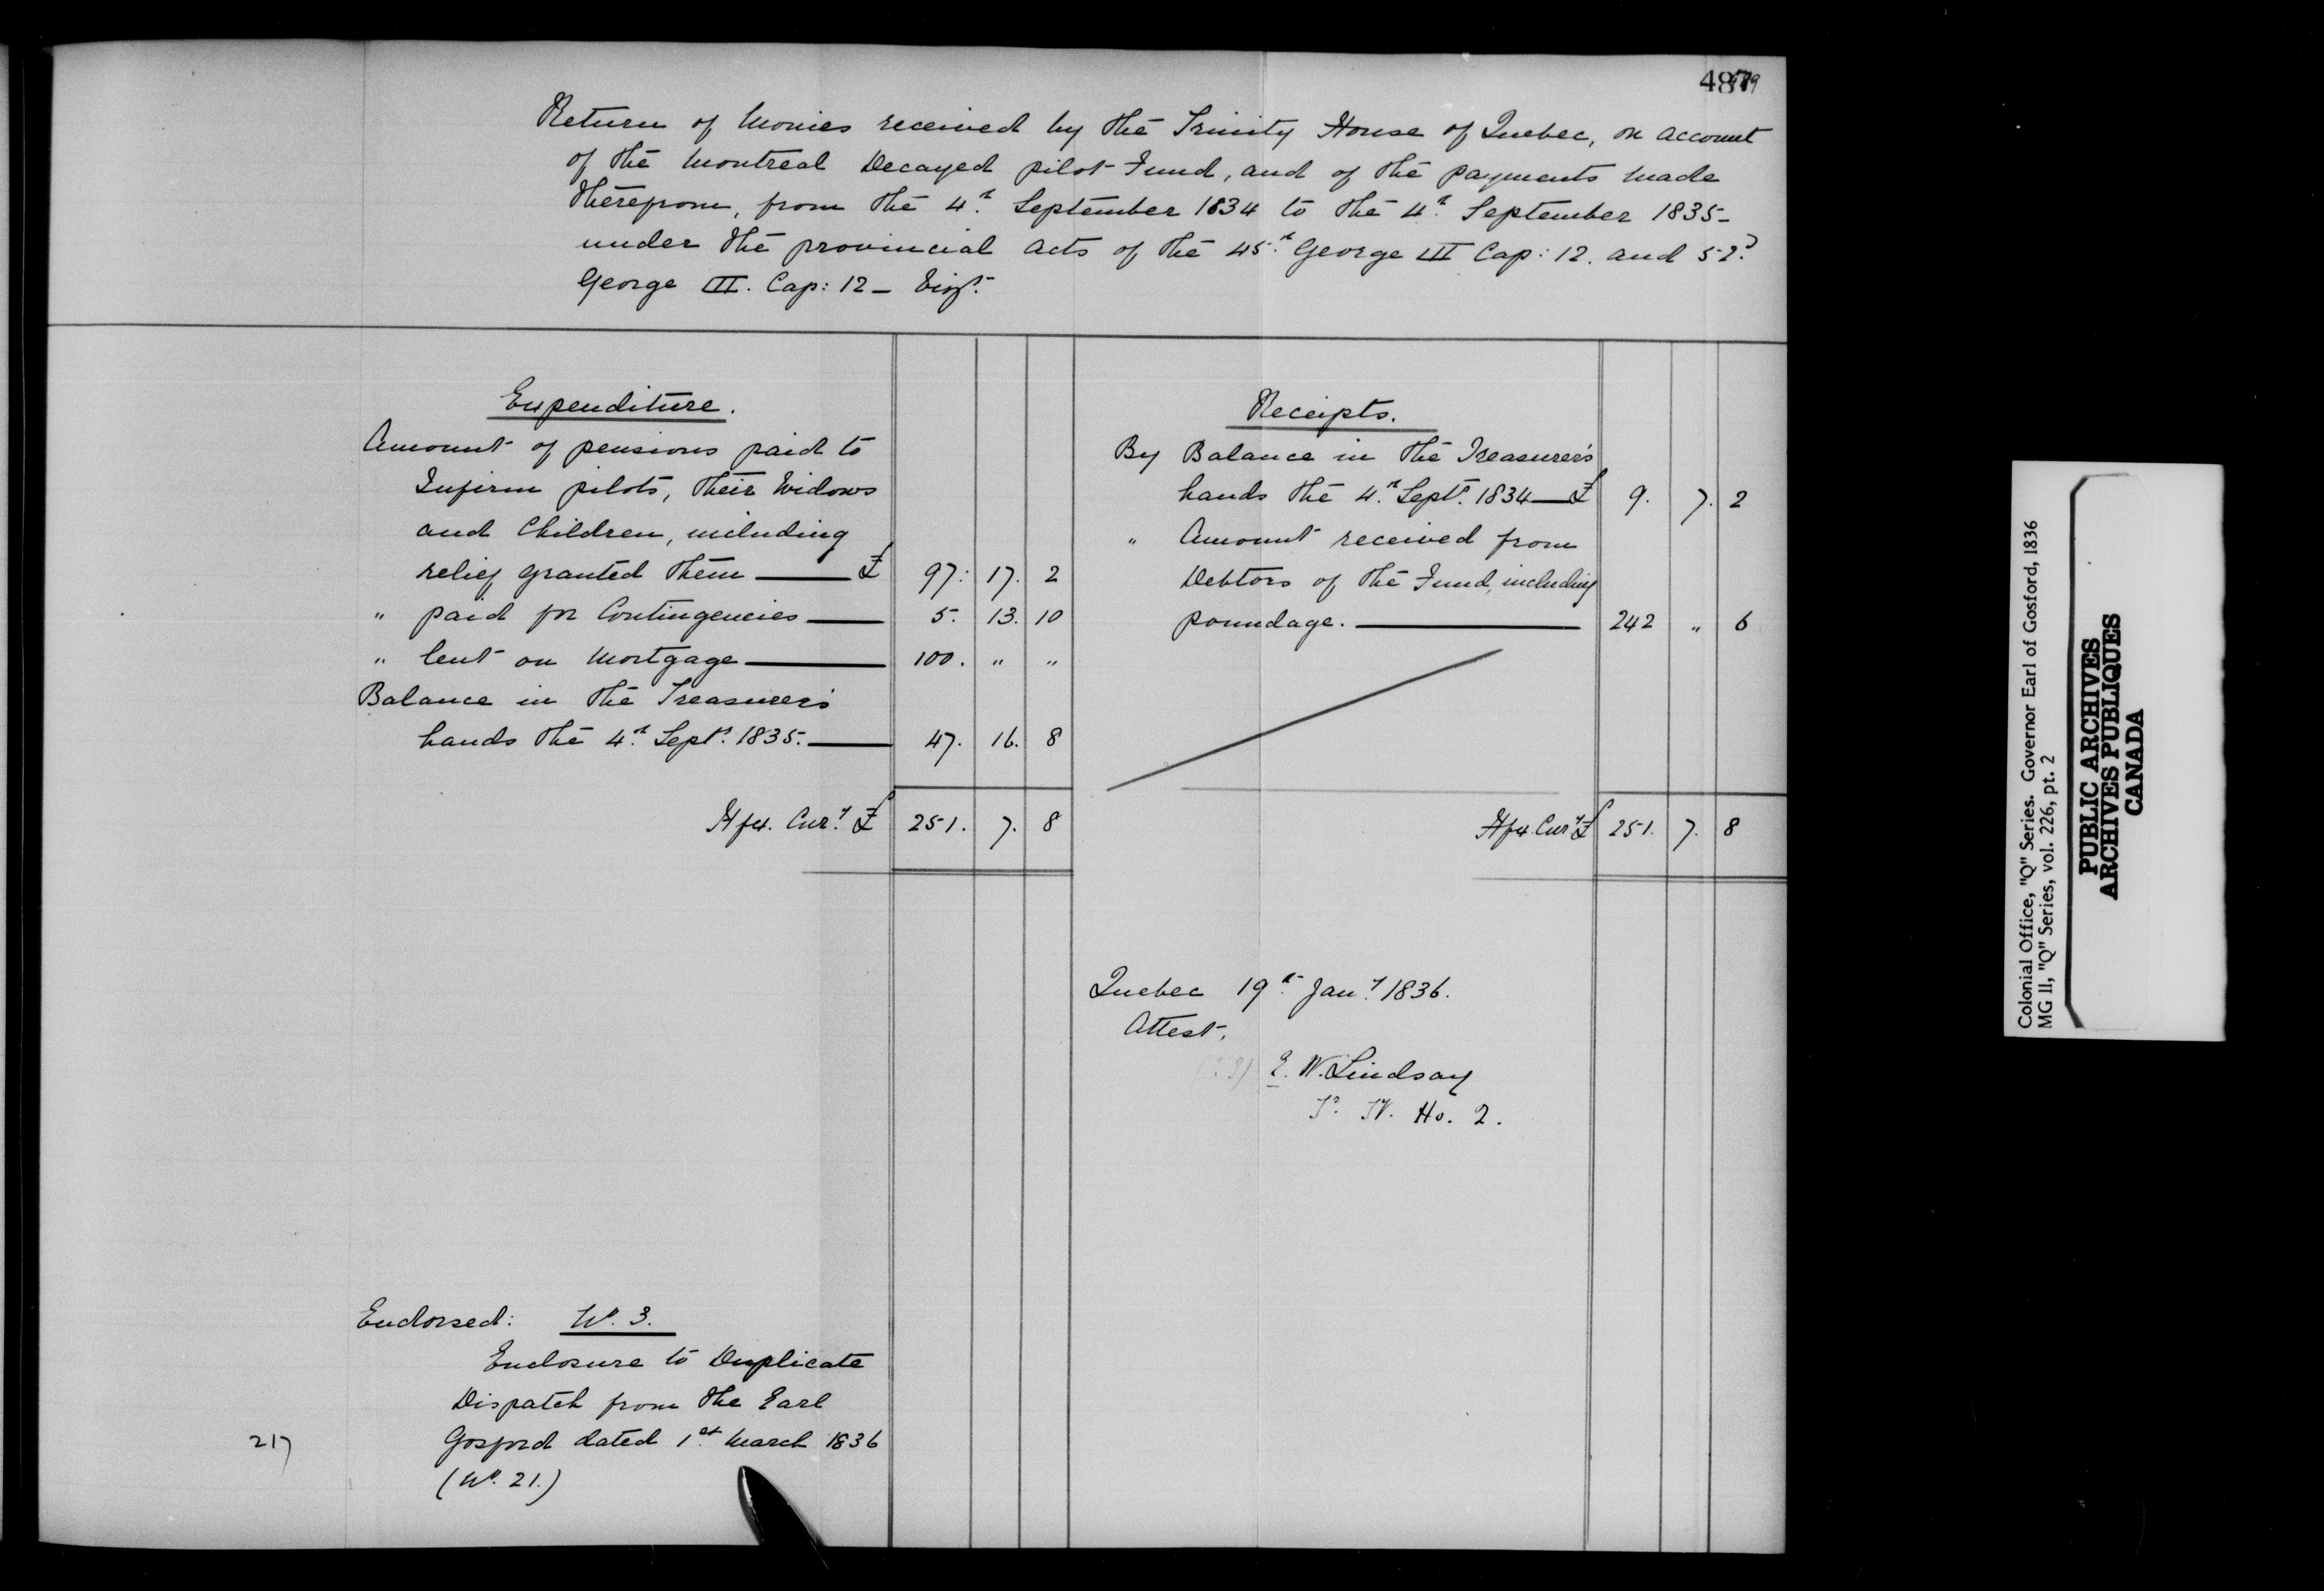 487
Return of Monies received by the Trinity House of Quebec, on account
of the Montreal Decayed pilot Fund, and of the payments made
therefrom, from the 4th September 1834 to the 4th September 1835-
under the provincial Acts of the 45th George III Cap: 12. and 52d
George III. Cap: 12 - Vizt.
Expenditure.
Amount of pensions paid to
Infirm pilots, their Widows
and Children, including
relief granted them — £ 97: 17. 2
" paid for Contingencies — 5. 13. 10
" lent on Mortgage — 100. " "
Balance in the Treasurer's
hands the 4th Sept. 1835. — 47. 16. 8
Hfx. Cury £ 251. 7. 8
Receipts.
By Balance in the Treasurer's
hands the 4th Sept. 1834 — £ 9. 7. 2
" Amount received from
Debtors of the Fund, including
poundage. — 242 " 6
Hfx. Cury £ 251. 7. 8
Quebec 19th Jany 1836.
Attest,
E. W. Lindsay
Ho. 2.
Endorsed: No. 3.
Enclosure to Duplicate
Dispatch from the Earl
Gosford dated 1st March 1836
(No. 21.)
217
Colonial Office, "Q" Series. Governor Earl of Gosford, 1836
MG II, "Q" Series, vol. 226, pt. 2
PUBLIC ARCHIVES
ARCHIVES PUBLIQUES
CANADA